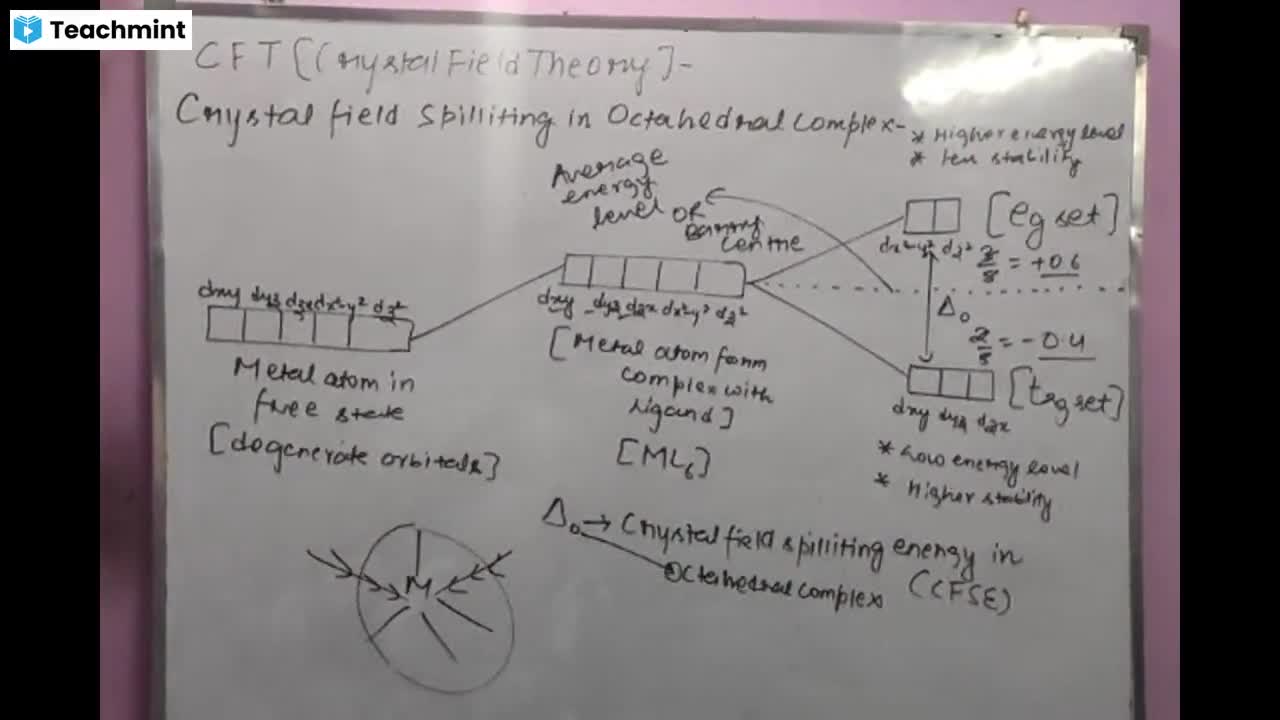 Teachmint
CFT [Crystal Field Theory] -
Crystal field spilliting in Octahedral complex -
* Higher energy level
* less stability
Average
energy
level OR
centre
[eg set]
dx²-y² dz²
= +0.6
Δo
= -0.4
[t2g set]
dxy dyz dzx
* Low energy level
* Higher stability
dxy dyz dzx dx²-y² dz²
Metal atom in
free state
[degenerate orbitals]
dxy dyz dzx dx²-y² dz²
[Metal atom form
complex with
ligand]
[ML6]
M
Δo → Crystal field spilliting energy in
Octahedral complex (CFSE)